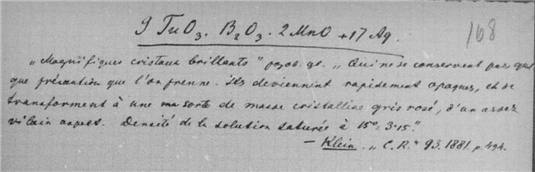 9 TuO₃. B₂O₃. 2MnO + 17 Aq. 168
„Magnifiques cristaux brillants" qui ne se conservent pas quel
que précaution que l'on prenne. ils deviennent rapidement opaques, et se
transforment à une sorte de masse cristalline gris rosé, d'un assez
vilain aspect. Densité de la solution saturée à 15° = 3.15."
— Klein. „C.R." 93. 1881. p. 494.